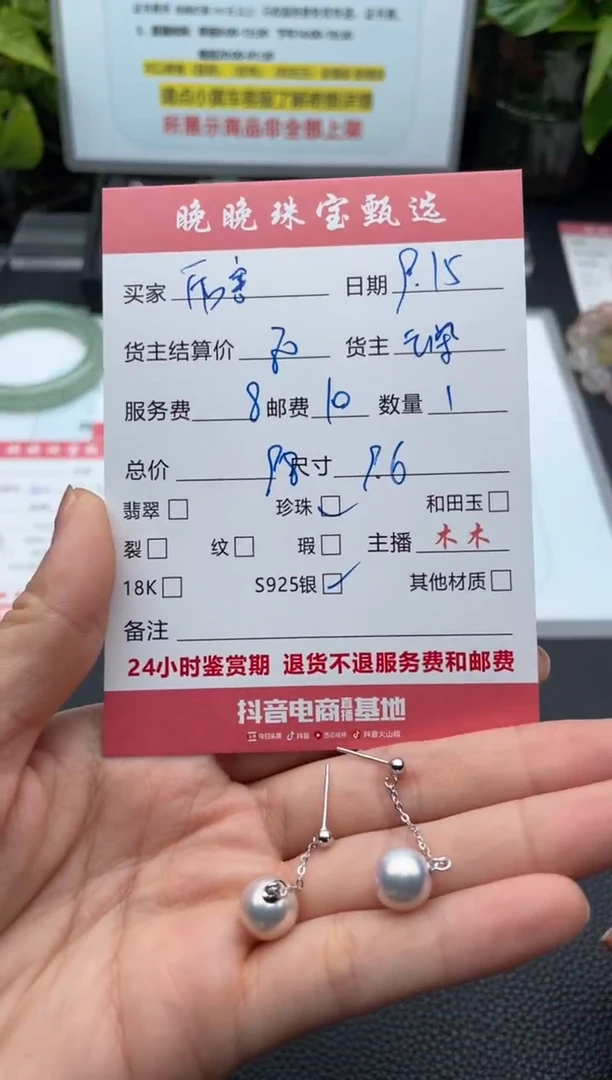 请点小黄车客服了解寄售详情
所展示商品非全部上架
晚晚珠宝甄选
买家 厉害 日期 9.15
货主结算价 80 货主
服务费 8 邮费 10 数量 1
总价 98 尺寸 9.6
翡翠 珍珠 ✓ 和田玉
裂 纹 瑕 主播 木木
18K S925银 ✓ 其他材质
备注
24小时鉴赏期 退货不退服务费和邮费
抖音电商直播基地
今日头条 抖音 西瓜视频 抖音火山版